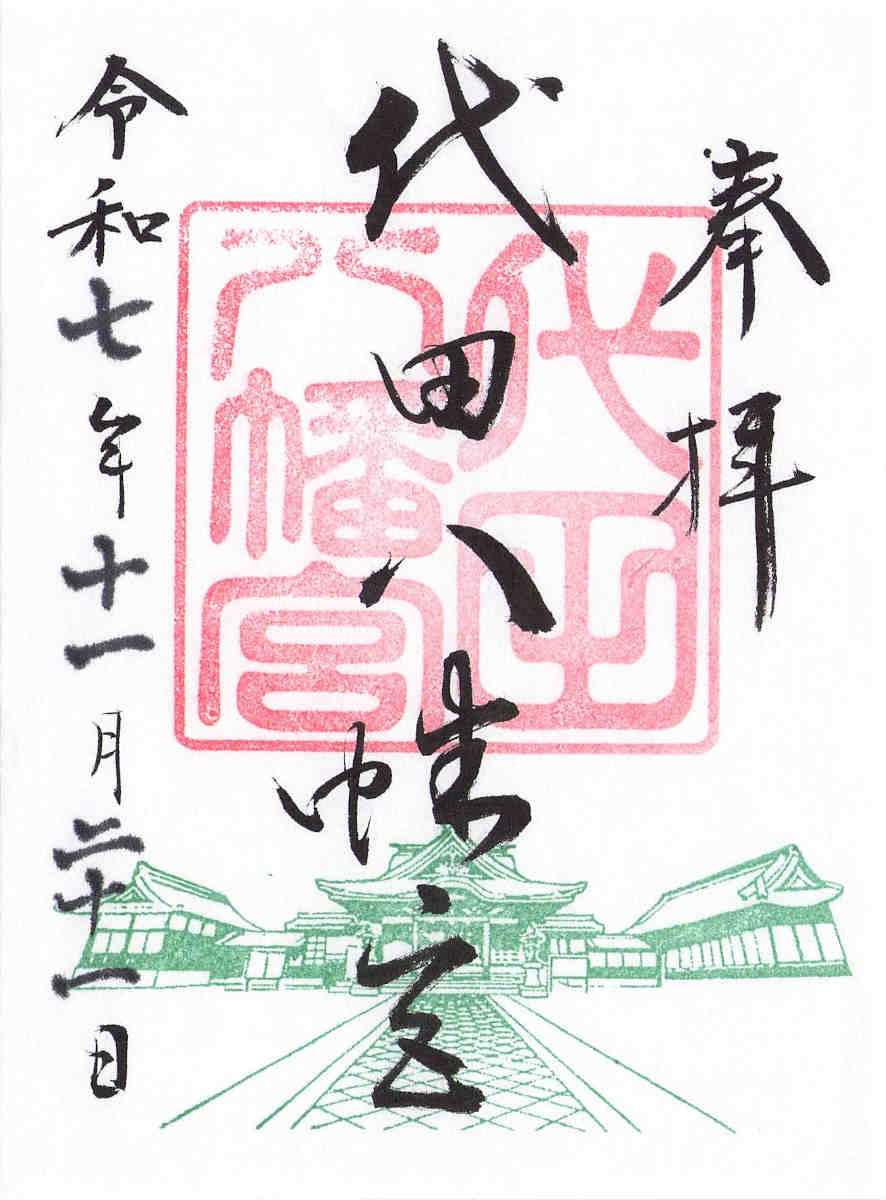 奉拝
代田八幡宮
令和七年十一月二十一日
代田
八幡宮